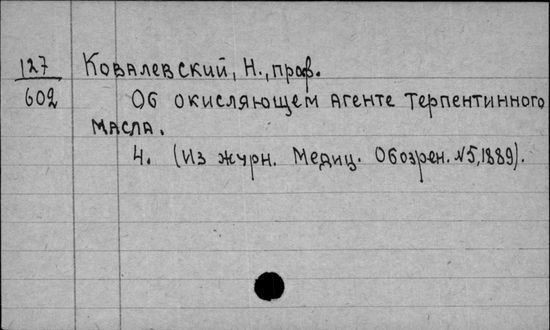 127 Ковалевский, Н., проф.
602 Об окисляющем агенте терпентинного
масла.
4. (Из журн. Медиц. Обозрен. №5, 1889).